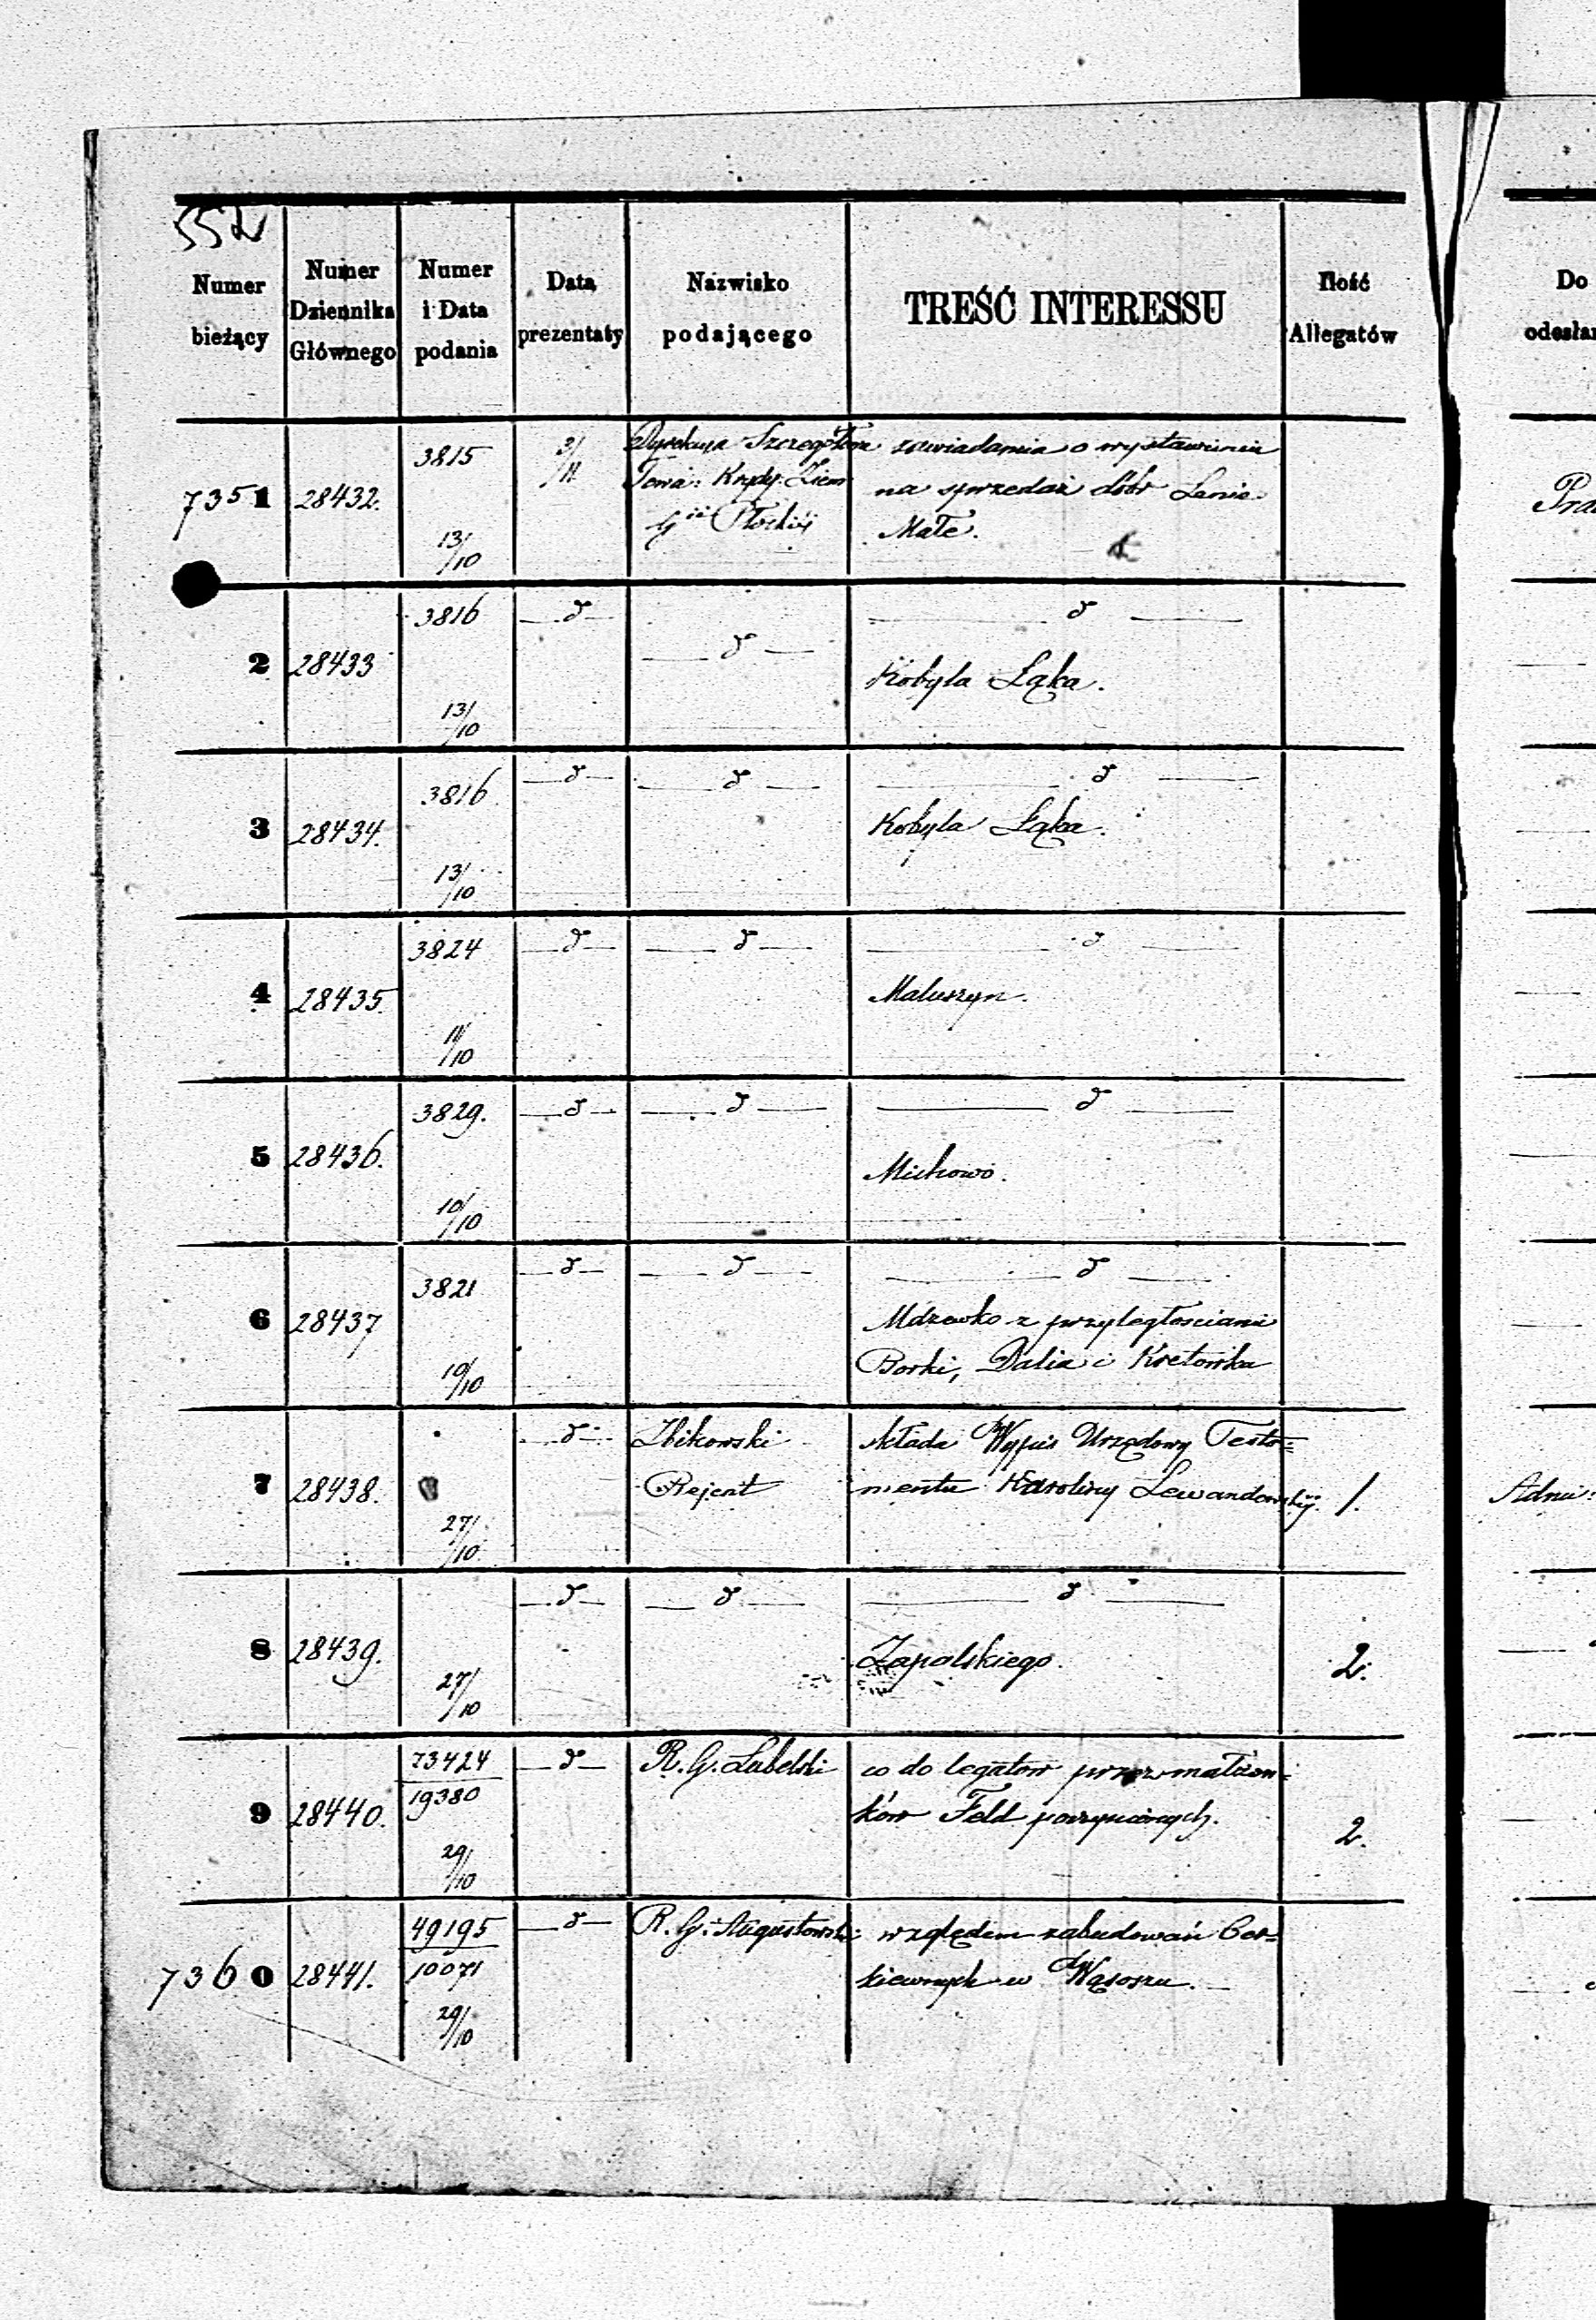 552
Numer bieżący
Numer Dziennika Głównego
Numer i Data podania
Data prezentaty
Nazwisko podającego
TREŚĆ INTERESSU
Ilość Allegatów
Do
7351 28432. 3815 13/10 2/11 Dyrekcya Szczegółowa zawiadamia o wystawieniu
Towa: Kredy: Ziem na sprzedaż dóbr Lenie
Gii Płockiij Małe.
2 28433 3816 13/10 d d d
Kobyla Łąka.
3 28434. 3816 13/10 d d d
Kobyla Łąka.
4 28435. 3824 11/10 d d d
Maluszyn.
5 28436. 3829. 10/10 d d d
Michowo.
6 28437 3821 10/10 d d d
Mdzewko z przyległosciami
Borki, Dalia i
7 28438. 27/10 d Zbikowski składa Wypis Urzędowy Testa=
Rejent mentu Karoliny Lewandowskij. 1.
8 28439. 27/10 d d d
Zapolskiego. 2.
9 28440. 73424 19380 29/10 d R. G. Lubelski co do legatow przez małżon=
ków Feld poczynionych. 2.
7360 28441. 49195 10071 29/10 d R. G. Augustowski względem zabudowań Cer=
kiewnych w Wąsoszu.